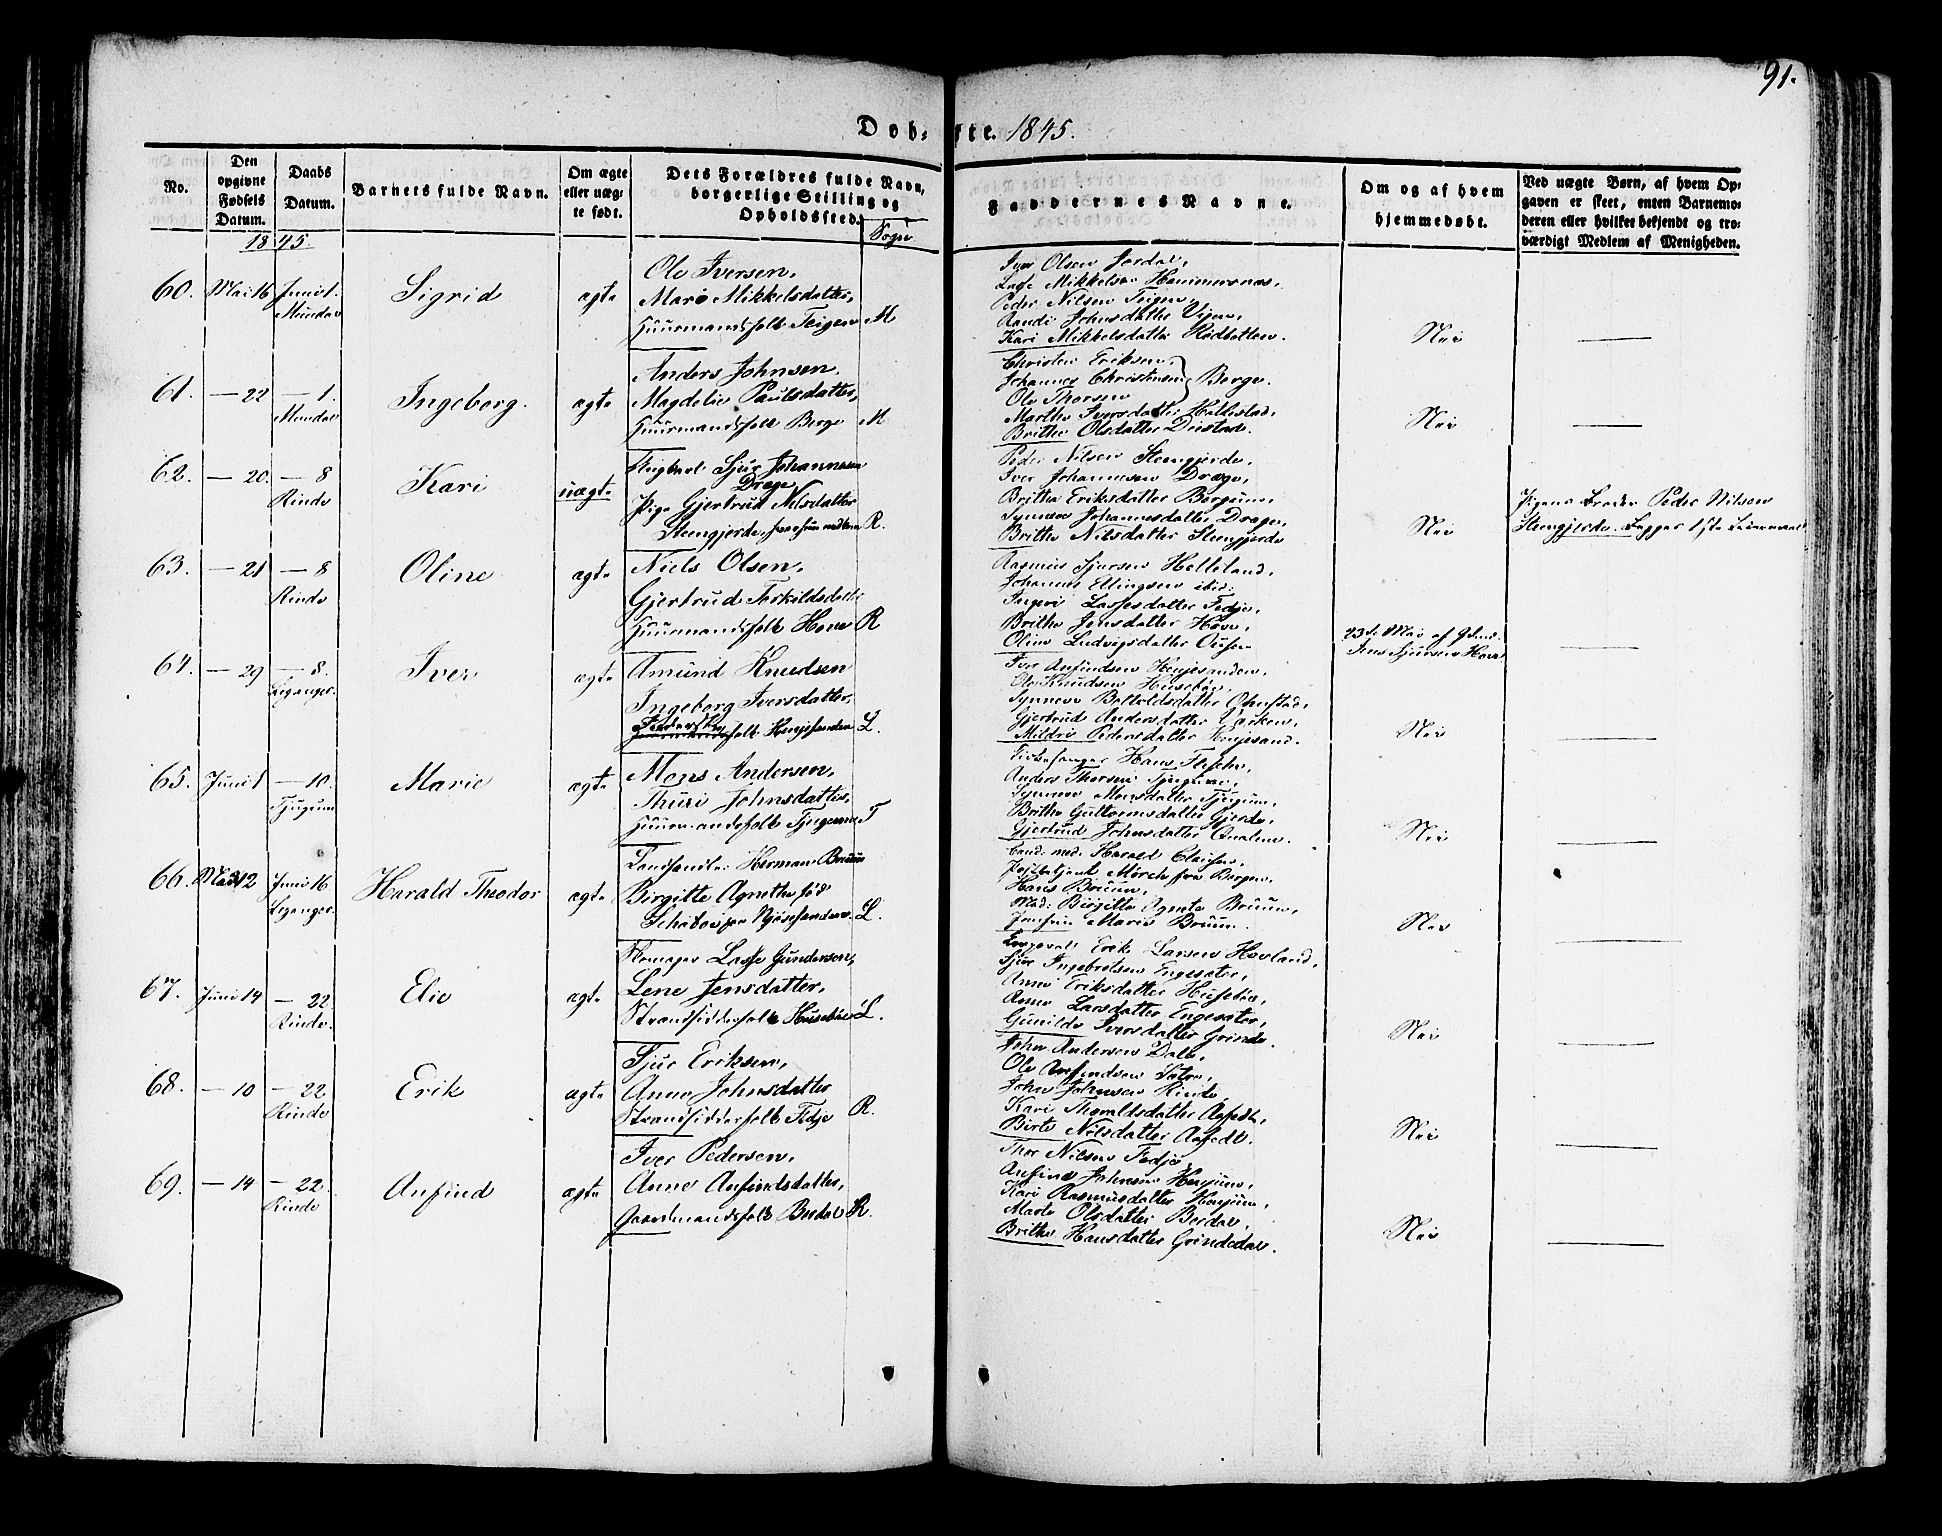 91.
Døb-te. 1845.
No.
Den opgivne Fødsels Datum.
Daabs Datum.
Barnets fulde Navn.
Om ægte eller uægte født.
Dets Forældres fulde Navn, borgerlige Stilling og Opholdssted.
Sogn
Faddernes Navne.
Om og af hvem hjemmedøbt.
Ved uægte Børn, af hvem Opgaven er skeet, enten Barnemoderen eller hvilket bekjendt og troværdigt Medlem af Menigheden.
1845.
60. Mai 16 Juni 1. Mundal Sigrid ægte
Ole Iversen,
Mari Mikkelsdatter,
Huusmandsfolk Teigen M
Iver Olsen Jordal,
Lasse Mikkelsen Hammersnes,
Peder Nilsen Teigen,
Randi Johnsdatter Vigen,
Kari Mikkelsdatter Rødbotten.
Nei
61. — 22 — 1. Mundal Ingeborg. ægte
Anders Johnsen,
Magdeli Paulsdatter,
Huusmandsfolk Berge M
Christen Eriksen,
Johannes Christensen Berge.
Ole Thorsen
Martha Iversdatter Hallestad,
Brithe Olsdatter Deistad.
Nei
62. — 20. — 8 Rinde Kari uægte
Ungkarl Sjur Johannesen
Drage
Pige Gjertrud Nilsdatter
Steengjerde, R.
Peder Nilsen Steengjerde,
Iver Johannesen Drage,
Britha Eriksdatter Bergum,
Synneve Johannesdatter Drage,
Brithe Nilsdatter Steengjerde
Nei
Pigens Broder Peder Nilsen
Steengjerde. Begges 1ste Leiermaal
63. — 21 — 8 Rinde Oline ægte
Niels Olsen,
Gjertrud Torkildsdatter
Huusmandsfolk Hove R
Rasmus Sjursen Helleland,
Johannes Ellingsen ibid:
Ingeri Lassesdatter Fedje,
Brithe Jensdatter Hove,
Oline Ludvigsdatter
23de Mai af
Jens Sjursen Hove
64. — 29 — 8. Leganger. Iver ægte
Amund Knudsen
Ingeborg Iversdatter,
folk Henjesanden L.
Iver Anfindsen Henjesanden,
Ole Knudsen Husebøe,
Synneve Botholdsdatter
Gjertrud Andersdatter
Mildri Pedersdatter Henjesand.
Nei
65. Juni 1 — 10. Tjugum Marie ægte
Mons Andersen,
Thuri Johnsdatter,
Huusmandsfolk Tjugum T
Kirkesanger Hans
Anders Thorsen Tjugum,
Synneve Monsdatter Tjugum,
Brithe Guttormsdatter Gjerde,
Gjertrud Johnsdatter Qvalen.
Nei
66. 12 Juni 16 Leganger. Harald Theodor ægte
Landhandler Herman Bruun
Birgitte Agnethe fød
L.
Cand: med: Harald Clausen,
Mørch fra Bergen,
Hans Bruun,
Mad: Birgitte Agnete Bruun,
Jomfru Marie Bruun.
Nei
67. Juni 14 — 22 Rinde. Elie ægte
Skomager Lasse Gundersen,
Lene Jensdatter,
Strandsidderfolk Husebøe L.
Erik Larsen Hovland,
Sjur Ingebretsen Engesæter,
Anne Eriksdatter Husebøe,
Anne Larsdatter Engesæter,
Gunilde Iversdatter Grinde.
Nei
68. — 10 — 22 Rinde Erik ægte
Sjur Eriksen,
Anne Johnsdatter
Strandsidderfolk Fedje R.
John Andersen Dale,
Ole Anfindsen
John Johnsen Rinde,
Kari Thoraldsdatter Aafedt,
Birte Nilsdatter Aafedt.
Nei
69. — 14 — 22. Rinde Anfind ægte
Iver Pedersen,
Anne Anfindsdatter,
Gaardmandsfolk Berdal R.
Thor Nilsen Fedje
Anfind Johnsen Henjum,
Kari Rasmusdatter Henjum,
Marte Olsdatter Berdal,
Brithe Hansdatter Grindedal.
Nei